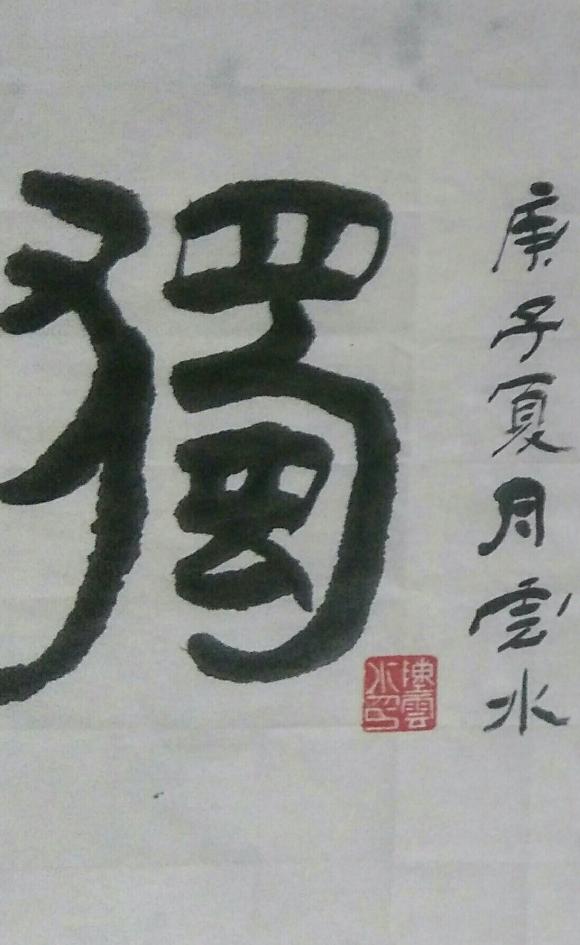 獨
庚子夏月雲水
陳雲
水印